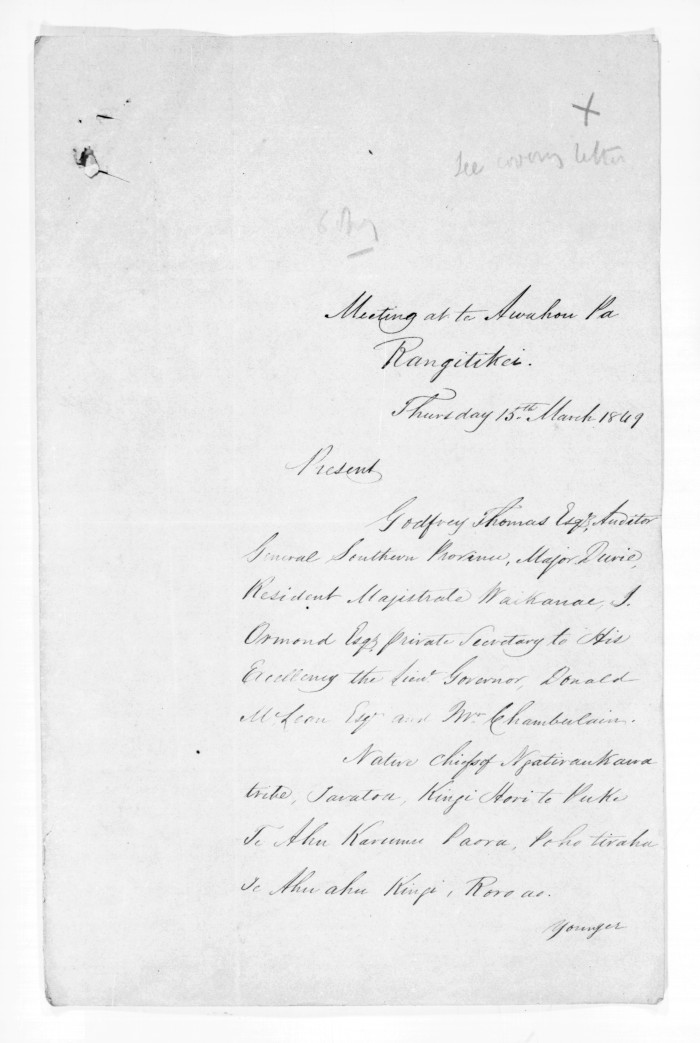 See covering letter
Meeting at te Awahou Pa
Rangitikei.
Thursday 15th March 1849
Present
Godfrey Thomas Esqr. Auditor
General Southern Province, Major Durie,
Resident Majistrate Waikanae, J.
Ormond Esqr private Secretary to His
Excellency the Lieut. Governor, Donald
McLean Esqr and Mr. Chamberlain.
Native chiefs of Ngatiraukawa
tribe, Taratoa, Kingi Hori te Puke
Te Ahu Karumu Paora, Poho tiraha
Te Ahu ahu Kingi, Roro ao.
Younger